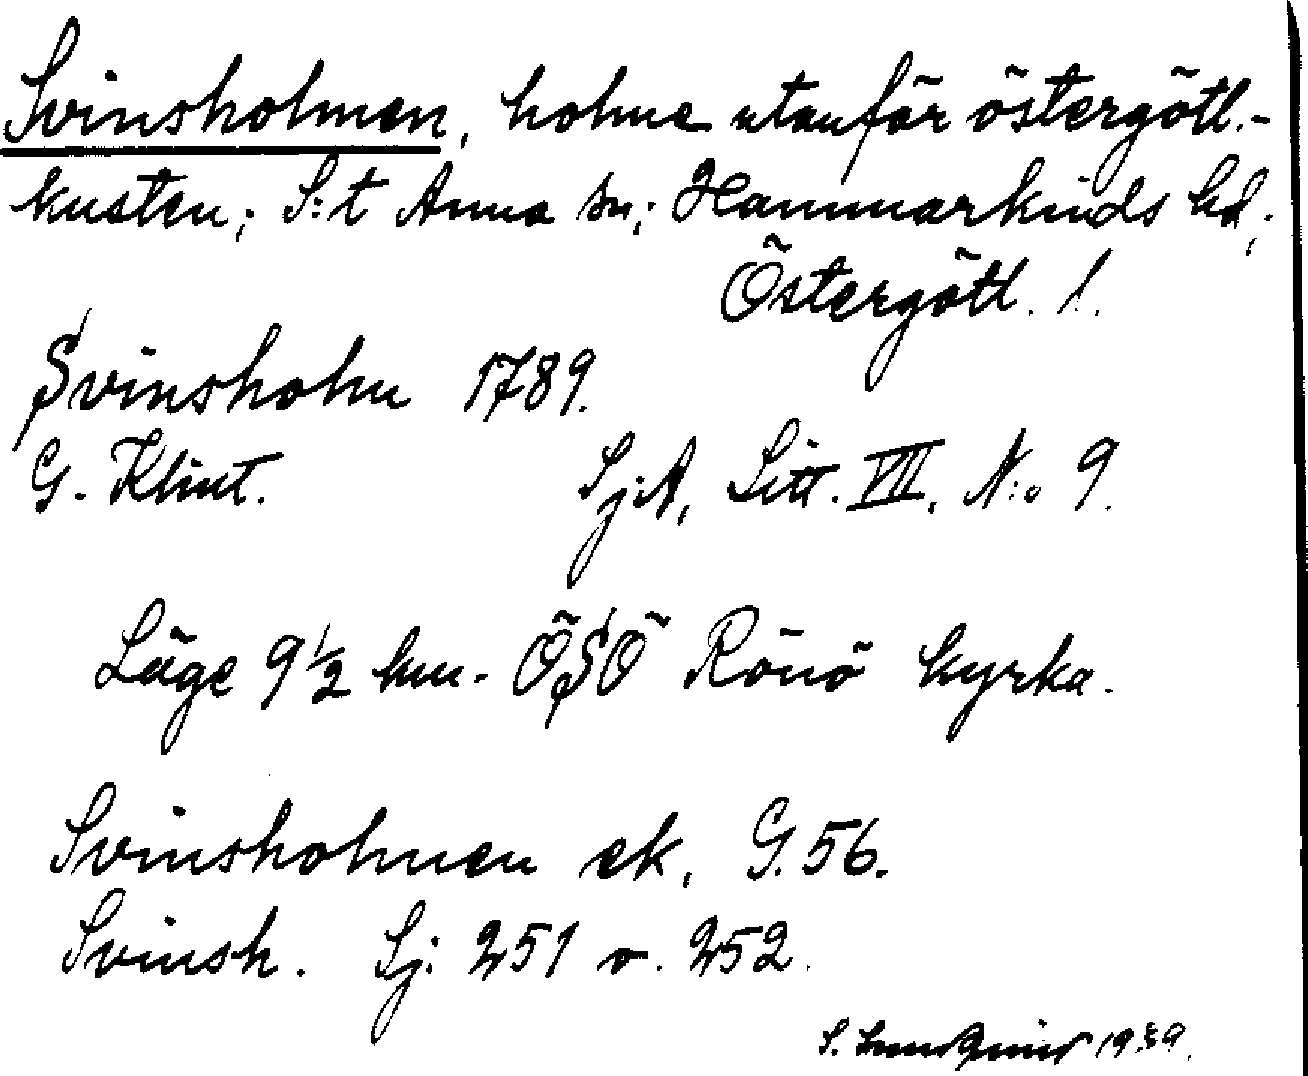 Svinsholmen, holme utanför östergötl.-
kusten; S:t Anna sn; Hammarkinds hd,
Östergötl. l.
Svinsholm 1789.
G. Klint. Sj:A, Litt. VII. N:o 9.
Läge 9 1/2 km. ÖSÖ Rönö kyrka.
Svinsholmen ek. G. 56.
Svinsh. Sj: 251 o. 252.
S. 1939.